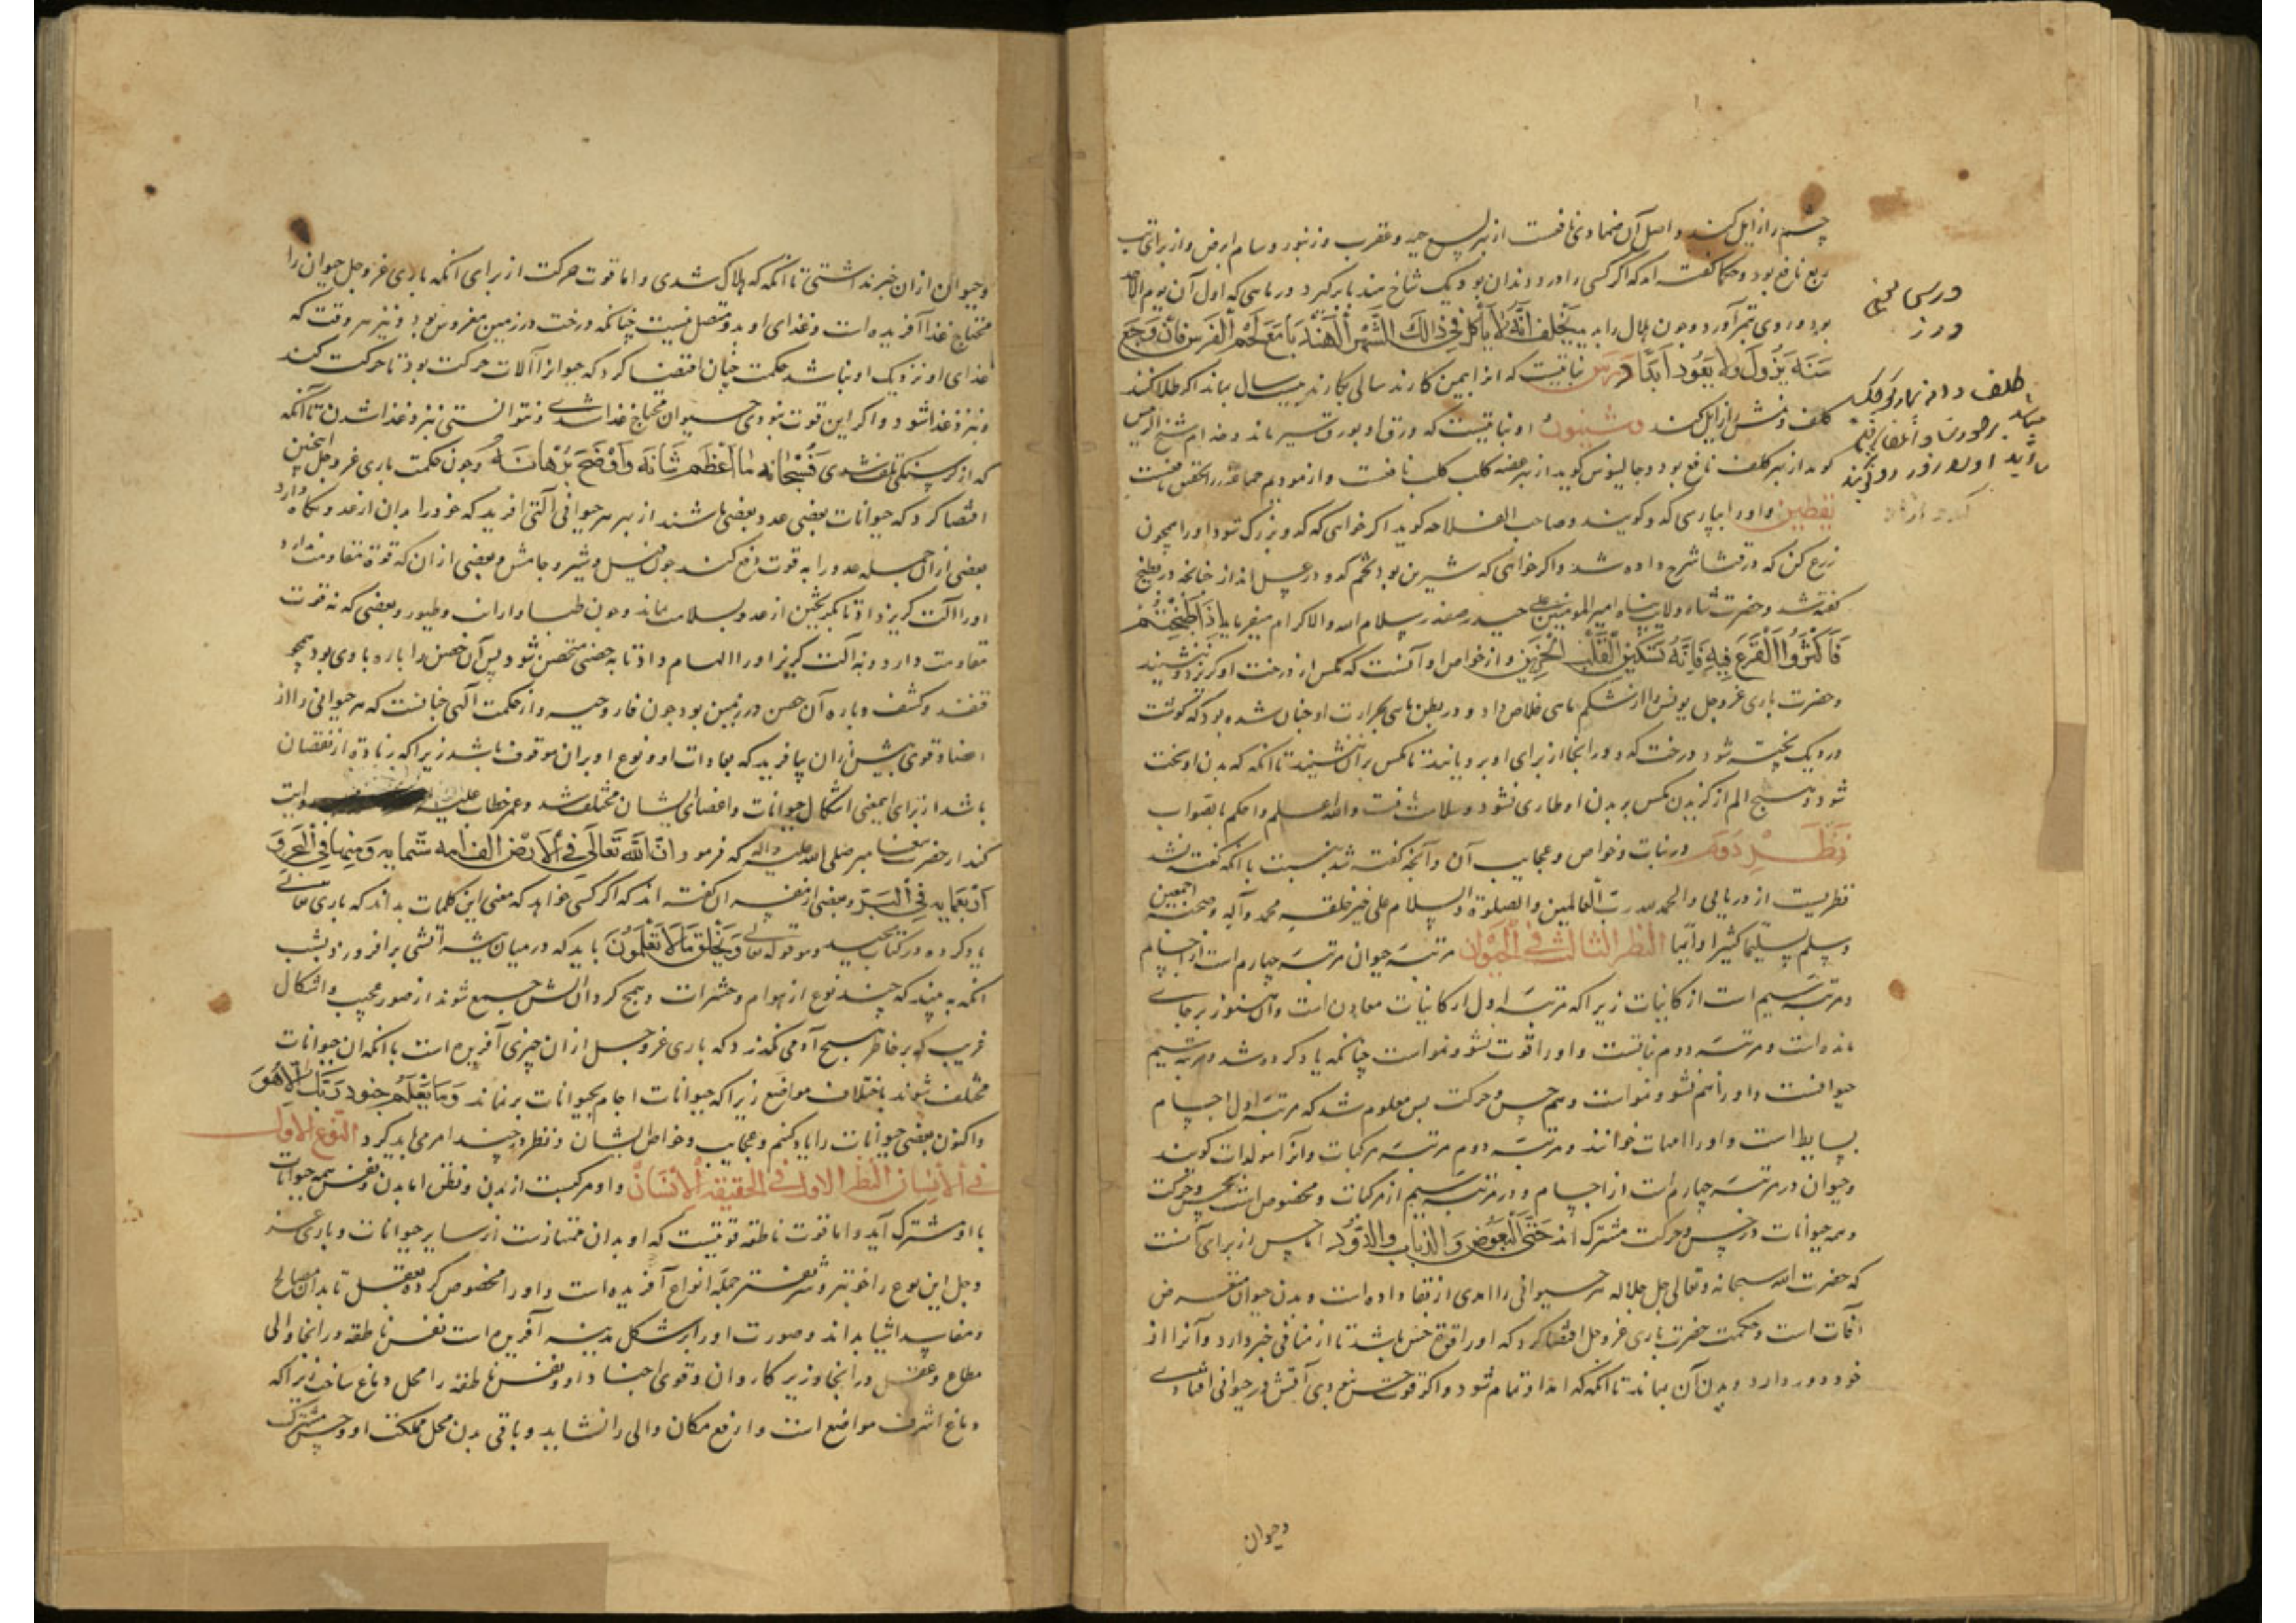 چشم را زایل کند و اصل آن ضمادی نافعست از بهر لسع حیه و عقرب و زنبور و سام ابرص و از برای تب
ربع نافع بود و حکما گفته اند که اگر کسی را درد دندان بود یک شاخ هندبا برگیرد در ماهی که اول آن یوم الاحد
بود و روی بقمر آورد و چون هلال را بیند یَحْلِف اَنَّهُ لا یَأکُل فی ذٰلِكَ الشَّهْر اَلْهِنْدَبا مَعَ لَحْم الْفَرَس فَاِنَّ وَجَعَ
سَنَه یَزُول وَلا یَعُود اَبَدًا ورس نباتیست که از ابیمن کارند سالی بکارند بیست سال بماند اگر طلا کنند
کلف و نمش را زایل کند او نباتیست که ورق او بورق سیر ماند شیخ الرئیس
گوید از بهر کلف نافع بود و جالینوس گوید از بهر عضه کلب کلب نافعست
یقطین و او را بپارسی کدو گویند و صاحب الفلاحه گوید اگر خواهی که کدو بزرگ شود او را همچون
زرع کن که در قثا شرح داده شد و اگر خواهی که شیرین بود تخم کدو در عسل انداز چنانچه در بطیخ
گفته شد و حضرت شاه ولایت پناه امیر المومنین حیدر صفدر سلام الله و الاکرام میفرماید اِذَا طَبَخْتُمْ
فَاَکْثَرُوا اَلْقَرَعَ فِیهِ فَاِنَّهُ تَسْکین الْقَلْبِ الْحَزین و از خواص او آنست که مگس از درخت او گریزد و ننشیند
و حضرت باری عز و جل یونس را از شکم ماهی خلاص داد و در بطن ماهی بحرارت او چنان شده بود که گوشت
در دیگ پخته شود درخت کدو در انجا از برای او برویانید تا مگس بر آن ننشیند تا آنکه که بدن او سخت
شود و هیچ الم از گزیدن مگس بر بدن او طاری نشود و سلامت یافت والله اعلم و احکم بالصواب
نَظَرِ دوم در نبات و خواص و عجایب آن و آنچه گفته شد بنسبت با آنکه گفته نشد
قطریست از دریایی والحمد لله رب العالمین والصلوة والسلام علی خیر خلقه محمد وآله وصحبه اجمعین
وسلم تسلیما کثیرا دائما النظر الثالث فی الحیوان مرتبه حیوان مرتبه چهارم است از اجسام
و مرتبه سیم است از کاینات زیرا که مرتبه اول از کاینات معادن است و آن هنوز بر جای
مانده است و مرتبه دوم نباتست و او را قوت نشو و نماست چنانکه یاد کرده شد و مرتبه سیم
حیوانست و او را هم نشو و نماست و هم حس و حرکت پس معلوم شد که مرتبه اول اجسام
بسایط است و او را امهات خوانند و مرتبه دوم مرتبه مرکبات و آنرا مولدات گویند
و حیوان در مرتبه چهارم است از اجسام و در مرتبه سیم از مرکبات و مخصوص است بحس و حرکت
و همه حیوانات در حس و حرکت مشترک اند حَتَّی الْبَعُوض وَالذُّباب وَالدُّود اما حس از برای آنست
که حضرت الله سبحانه و تعالی جل جلاله هر حیوانی را امدی از بقا داده است و بدن حیوان معرض
آفات است و حکمت حضرت باری عز و جل اقتضا کرد که او را قوة حس باشد تا از منافی خبر دارد و آنرا از
خود دور دارد و بدن آن بماند تا آنکه که امد او تمام شود و اگر قوت حس نبودی آتش در حیوانی افتادی
وحیوان
و حیوان از ان خبر نداشتی تا آنکه که هلاک شدی و اما قوت حرکت از برای آنکه باری عز و جل حیوان را
محتاج غذا آفریده است و غذای او بدو متصل نیست چنانکه درخت در زمین مغروس بود و نیز هر وقت که
غذای او نزدیک او نباشد حکمت چنان اقتضا کرد که حیوانرا آلات حرکت بود تا حرکت کند
و بنزد غذا شود و اگر این قوت نبودی حیوان محتاج غذا شدی و نتوانستی بنزد غذا شدن تا آنکه
که از گرسنگی تلف شدی فَسُبْحانَه مٰا اَعْظَم شَانَه وَاَوْضَحَ بُرْهانَهُ و چون حکمت باری عز و جل اینچنین
اقتضا کرد که حیوانات بعضی عدو بعضی باشند از بهر هر حیوانی آلتی آفرید که خود را بدان از عدو نگاه دارد
بعضی از آن جمله عدو را به قوت دفع کنند چون فیل و شیر و جامش و بعضی از ان که قوة مقاومت ندارد
او را آلت گریز داد تا بگریختن از عدو بسلامت ماند و چون ظبا و ارانب و طیور و بعضی که نه قوت
مقاومت دارد و نه آلت گریز او را الهام داد تا به حصنی متحصن شود پس آن حصن را باره با وی بود همچو
قنفذ و کشف و باره آن حصن در زمین بود چون فار و حیه و از حکمت الهی چنانست که هر حیوانی را از
اعضا و قوی بیش از ان نیافرید که بقا ذات او و نوع او بران موقوف باشد زیرا که زیادة از نقصان
باشد از برای اینمعنی اشکال حیوانات و اعضای ایشان مختلف شد و عمر خطاب علیه روایت
کند از حضرت پیغامبر صلی الله علیه وآله که فرمود اِنَّ اللّٰهَ تَعَالٰی فی الْاَرْض الف امه ستمایه وَمِنها فی الْبَحْرِ وَ
اَرْبَعَمایه فِی الْبَرّ و بعضی از مفسران گفته اند که اگر کسی خواهد که معنی این کلمات بداند که باری تعالی
یاد کرده در کتاب مجید و هو قوله تعالی وَیَخْلُقُ مَا لَا تَعْلَمُونَ باید که در میان بیشه آتشی برافروزد بشب
آنکه به بیند که چند نوع از هوام و حشرات و همج گرد آن آتش جمع شوند از صور عجیب و اشکال
غریب که بر خاطر هیچ آدمی نگذرد که باری عز و جل از ان چیزی آفریده است با آنکه ان حیوانات
مختلف شوند باختلاف مواضع زیرا که حیوانات اجام بحیوانات بر نماند وَمٰا یَعْلَمُ جنود رَبِّكَ اِلّا هُوَ
و اکنون بعضی حیوانات را یاد کنیم و عجایب و خواص ایشان و نظر در چند امر می باید کرد النوع الاول
فی الانسان النظر الاول فی الحقیقه الانسان و او مرکبست از بدن و نفس اما بدن و نفس همه حیوانات
با او مشترک آید و اما قوت ناطقه قوتیست که او بدان ممتازست از سایر حیوانات و باری عز
و جل این نوع را خوبتر و شریفتر جمله انواع آفریده است و او را مخصوص کرده بعقل تا بدان مصالح
و مفاسد اشیا بداند و صورت او را بر شکل مدینه آفریده است نفس ناطقه در انجا والی
مطاع و عقل در انجا وزیر کاردان و قوی اجناد او و نفس ناطقه را محل دماغ ساخت زیرا که
دماغ اشرف مواضع است و ارفع مکان والی را نشاید و باقی بدن محل مملکت او و حس مشترک